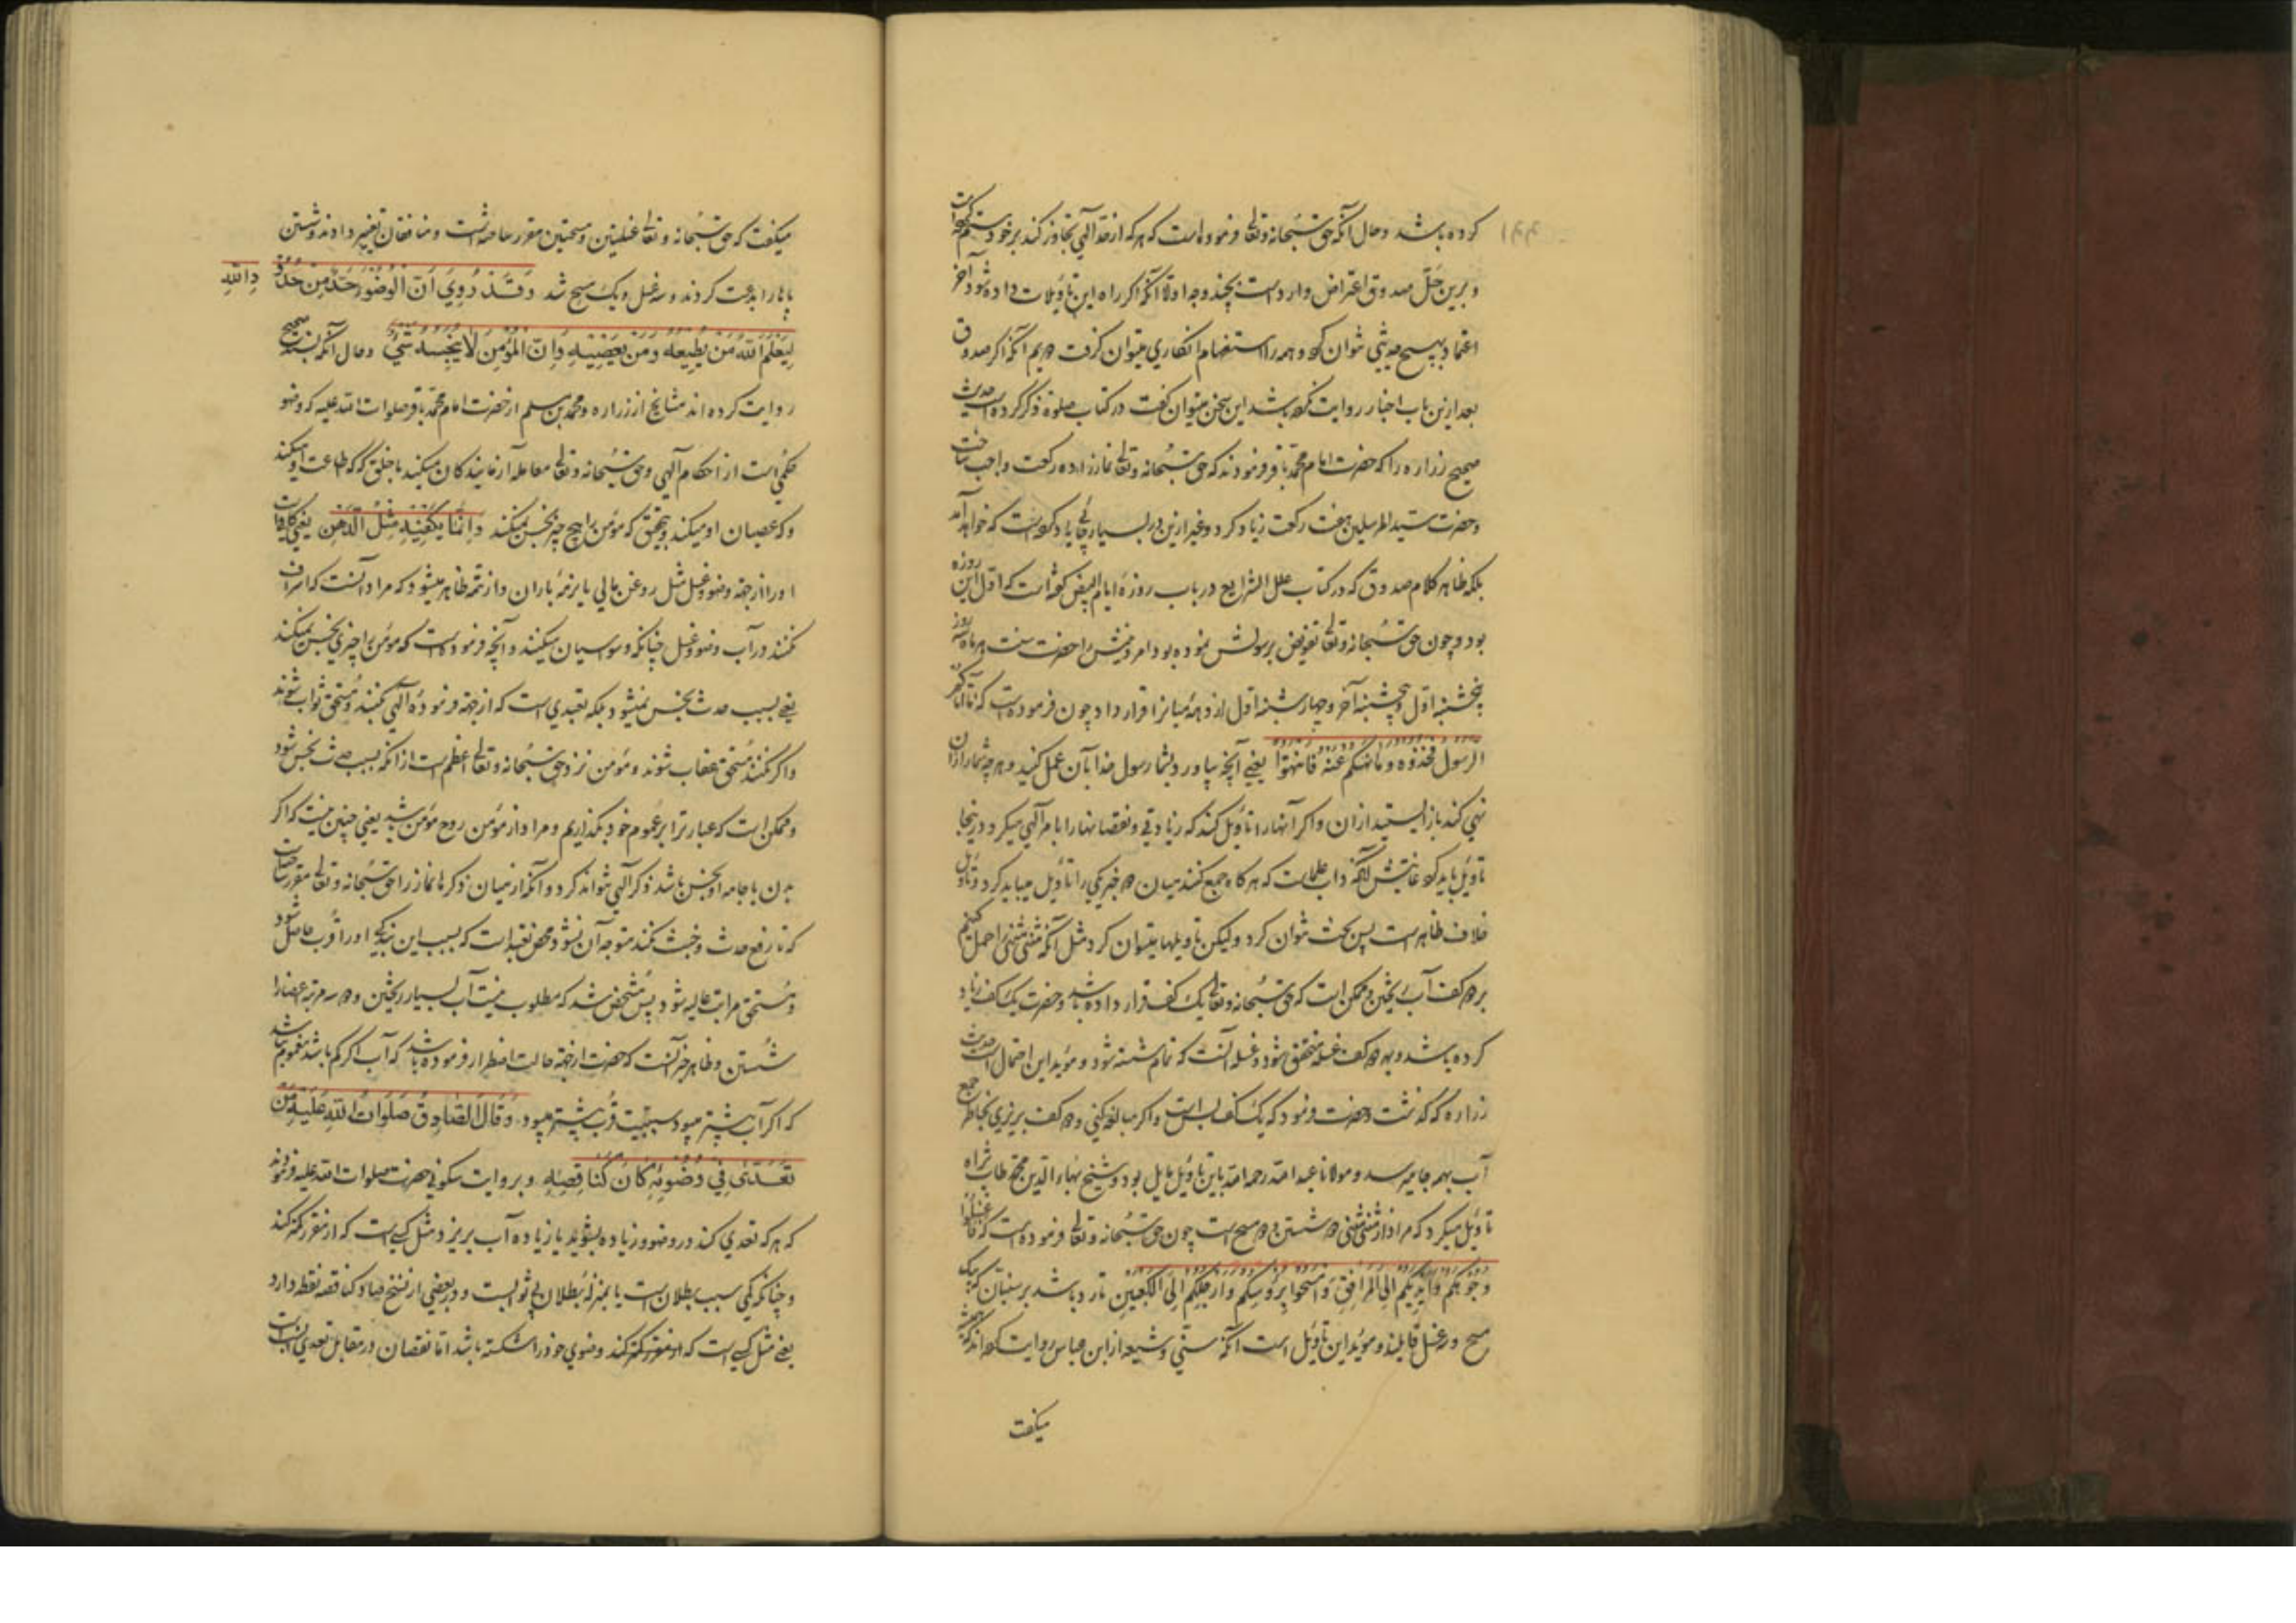 کرده باشد و حال آنکه حق سبحانه و تعالی فرموده است که هر که از حد الهی تجاوز کند بر خود ستم کرده است
و برین حل صدوق اعتراض وارد است بچند وجه اولا آنکه اگر راه این تأویلات داده شود در آخر
اعتماد بهیچ حدیثی نتوان کرد و همه را استفهام انکاری میتوان گرفت دویم آنکه اگر صدوق
بعد ازین باب اخبار روایت نکرده باشد این سخن میتوان گفت در کتاب صلوة ذکر کرده است حدیث
صحیح زراره را که حضرت امام محمد باقر فرمودند که حق سبحانه و تعالی نماز را ده رکعت واجب ساخت
و حضرت سید المرسلین هفت رکعت زیاد کرد و غیر ازین در بسیار جائی یاد کرده است که خواهد آمد
بلکه ظاهر کلام صدوق که در کتاب علل الشرایع در باب روزه ایام البیض گفته است که اول این روزه
بود و چون حق سبحانه و تعالی تفویض برسولش نموده بود امر دینش را حضرت سنت هر ماه سه روز
پنجشنبه اول و پنجشنبه آخر و چهارشنبه اول از دهه میانرا قرار داد چون فرموده است که ما آتاکم
الرسول فخذوه و ما نهیکم عنه فانتهوا یعنی آنچه بیاورد بشما رسول خدا بآن عمل کنید و هر چه شما را از آن
نهی کند باز ایستید از آن و اگر آنها را تأویل کنند که زیادتی و نقصانها را بامر الهی میکرد در اینجا
تأویل باید کرد غایتش آنکه داب علماست که هر گاه جمع کنند میان دو خبر یکی را تأویل میباید کرد و تأویل
خلاف ظاهر است پس بحث نتوان کرد ولیکن تأویلها میتوان کرد مثل آنکه مثنی مثنی را حمل کنیم
بر دو کف آب ریختن و ممکن است که حق سبحانه و تعالی یک کف قرار داده باشد و حضرت یک کف زیاد
کرده باشد و به دو کف غسله متحقق شود و غسله آنست که تمام شسته شود و مؤید این احتمال است حدیث
زراره که گذشت و حضرت فرمود که یک کف بس است و اگر مبالغه کنی و دو کف بریزی بخاطر جمع
آب بهمه جا میرسد و مولانا عبد الله رحمه الله باین تأویل مایل بود و شیخ بهاء الدین محمد طاب ثراه
تأویل میکرد که مراد از مثنی مثنی دو شستن و دو مسح است چون حق سبحانه و تعالی فرموده است که فاغسلوا
وجوهکم و ایدیکم الی المرافق و امسحوا برؤسکم و ارجلکم الی الکعبین تا رد باشد بر سنیان که بیک
مسح و سه غسل قایلند و مؤید این تأویل است آنکه سنی و شیعه از ابن عباس روایت کرده اند که همیشه
میکفت
میکفت که حق سبحانه و تعالی غسلتین و مسحتین مقرر ساخته است و منافقان تغییر دادند و شستن
پاها را بدعت کردند و سه غسل و یک مسح شد و قد روی ان الوضوء حد من حدود الله
لیعلم الله من یطیعه و من یعصیه و ان المؤمن لا ینجسه شیء و حال آنکه بسند صحیح
روایت کرده اند مشایخ از زراره و محمد بن مسلم از حضرت امام محمد باقر صلوات الله علیه که وضو
حکمی است از احکام الهی و حق سبحانه و تعالی معامله آزمایندکان میکند با خلق که که اطاعت او میکند
و که عصیان او میکند و بتحقیق که مؤمن را هیچ چیز نجس نمیکند و انما یکفیه مثل الدهن یعنی کافیست
او را از جهة وضو و غسل مثل روغن مالی یا برنمۀ باران و از تتمه ظاهر میشود که مراد آنست که اسراف
نکنند در آب وضو و غسل چنانکه وسواسیان میکنند و آنچه فرموده است که مؤمن را چیزی نجس نمیکند
یعنی بسبب حدث نجس نمیشود بلکه تعبدی است که از جهة فرموده الهی بکنند و مستحق ثواب شوند
و اگر نکنند مستحق عقاب شوند و مؤمن نزد حق سبحانه و تعالی اعظم است از آنکه بسبب حدث نجس شود
و ممکن است که عبارترا بر عموم خود بگذاریم و مراد از مؤمن روح مؤمن باشد یعنی چنین نیست که اگر
بدن یا جامه او نجس باشد ذکر الهی نتواند کرد و آنکه از میان ذکرها نماز را حق سبحانه و تعالی مقرر ساخت
که تا رفع حدث و خبث نکنند متوجه آن نشود محض تعبد است که بسبب این بندگی او را قرب حاصل شود
و مستحق مراتب عالیه شود پس مشخص شد که مطلوب نیست آب بسیار ریختن و دو سه مرتبه اعضا را
شستن و ظاهر خبر آنست که حضرت از جهة حالت اضطرار فرموده باشد که آب اگر کم باشد مغموم نباشد
که اگر آب بیشتر میبود سببیت قرب بیشتر میبود و قال الصادق صلوات الله علیه من
تعدی فی وضوئه کان کناقصه و بروایت سکونی حضرت صلوات الله علیه فرمودند
که هر که تعدی کند در وضو و زیاده بشوید یا زیاده آب بریزد مثل کسی است که از مقرر کمتر کند
و چنانکه کمی سبب بطلان است یا بمنزله بطلان بی ثوابست و در بعضی از نسخ صاد کناقصه نقطه دارد
یعنی مثل کسی است که از مقرر کمتر کند وضوی خود را شکسته باشد اما نقصان در مقابل تعدی انسب است